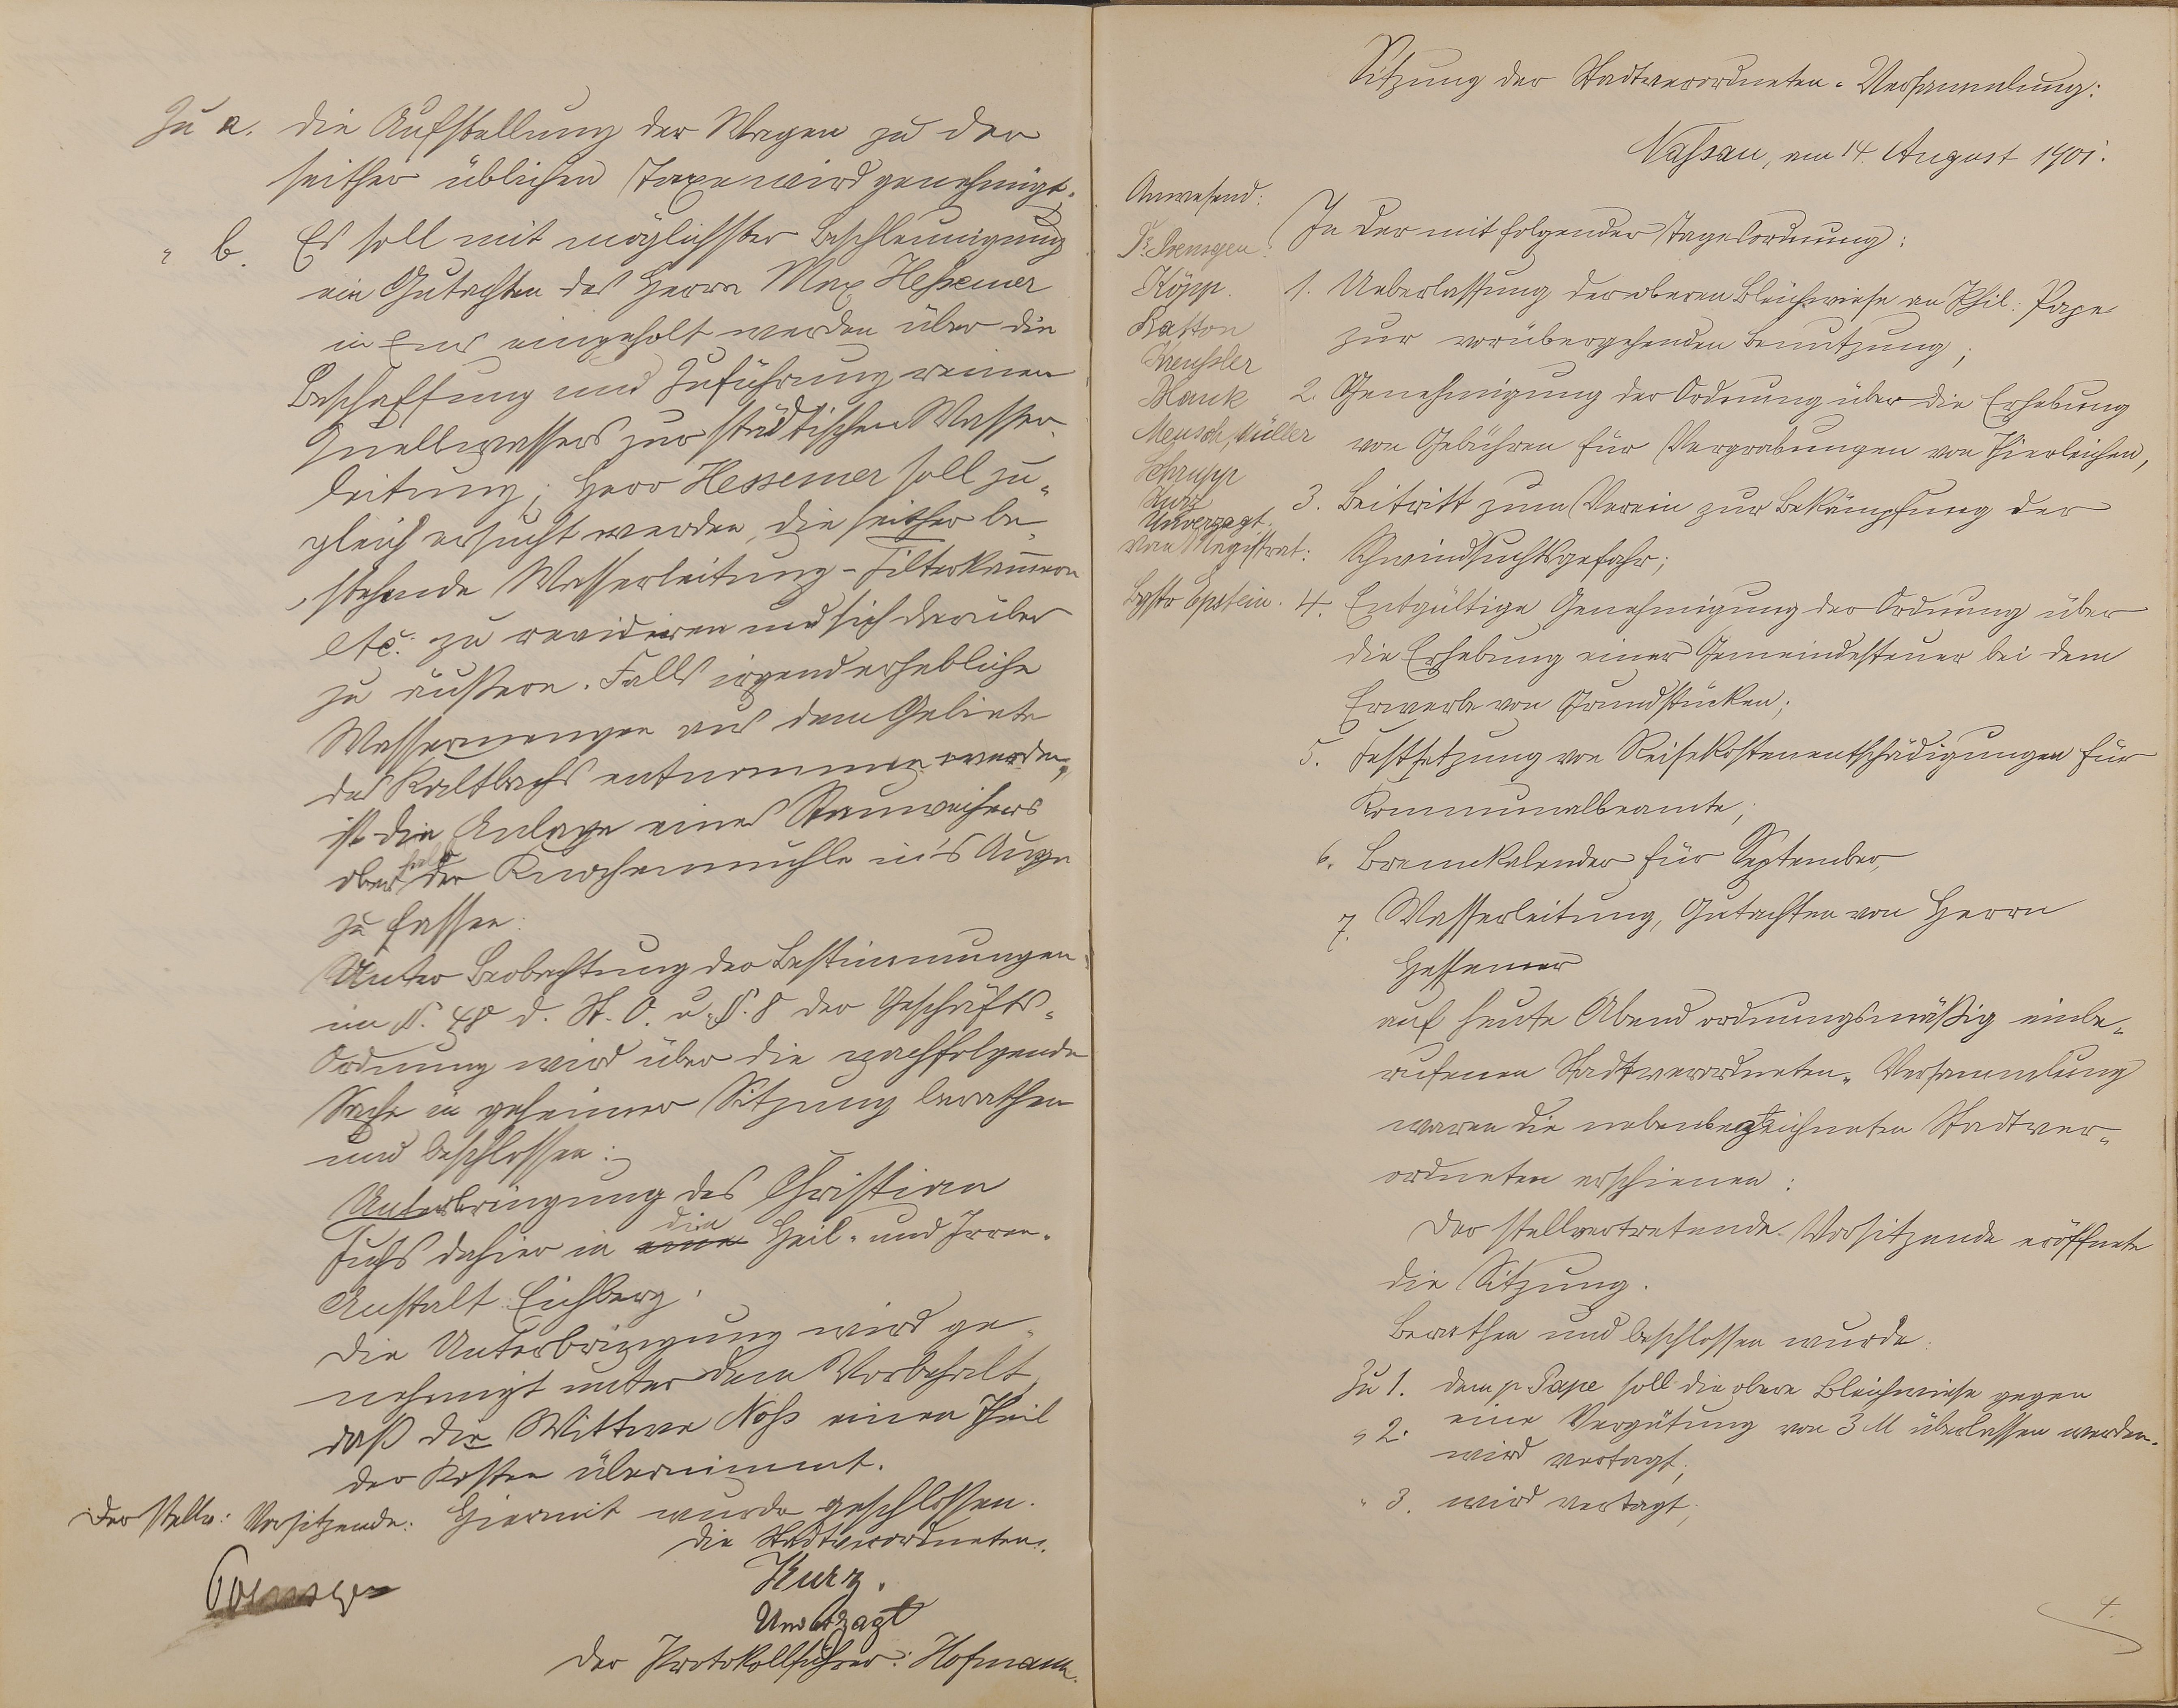 Zu a. die Aufstellung der Wagen zu der
seither üblichen Taxe wird genehmigt.
" b. Es soll mit möglichster Beschleunigung
ein Gutachten des Herrn Max Hessemer
in Ems eingeholt werden über die
Beschaffung und Zuführung reinen
Quellwassers zur städtischen Wasser-
leitung; Herr Hessemer soll zu-
gleich ersucht werden, die seither be-
stehende Wasserleitung - Filterkam̅ern
etc. zu revidieren und sich darüber
zu äußern. Falls irgend erhebliche
Wassermengen aus dem Gebiete
des Kaltbachs entnommen werden,
ist die Anlage eines Stauweihers
oberhalb der Knochenmühle in's Auge
zu fassen.
Unter Beobachtung der Bestimmungen
im §. 48 d. St. O. u. §. 8 der Geschäfts-
Ordnung wird über die nachfolgende
Sache in geheimer Sitzung berathen
und beschlossen:
Unterbringung des Christian
Fuchs dahier in eine die Heil- und Irren-
Anstalt Eichberg.
Die Unterbringung wird ge-
nehmigt unter dem Vorbehalt,
daß die Wittwe Noß einen Theil
der Kosten übernimmt.
Hiermit wurde geschlossen.
Der stellv. Vorsitzende:
Die Stadtverordneten.
Kurz.
Unverzagt
Der Protokollführer: Hofmann.
Sitzung der Stadtverordneten-Versammlung:
Nassau, am 14. August 1901.
Anwesend:
Köpp.
Kaston
Mank
Mensch, Müller
Schrupp
Kurz
Unverzagt.
vom Magistrat:
Bgstr Epstein.
In der mit folgender Tagesordnung:
1. Ueberlassung der oberen Bleichwiese an Phil. Pape
zur vorübergehenden Benutzung;
2. Genehmigung der Ordnung über die Erhebung
von Gebühren für Vergrabungen von Thierleichen,
3. Beitritt zum Verein zur Bekämpfung der
Schwindsuchtsgefahr;
4. Entgültige Genehmigung der Ordnung über
die Erhebung einer Gemeindesteuer bei dem
Erwerbe von Grundstücken;
5. Festsetzung von Reisekostenentschädigungen für
Kommunalbeamte;
6. Brennkalender für September,
7. Wasserleitung, Gutachten von Herrn
Hessemer
auf heute Abend ordnungsmäßig einbe-
rufenen Stadtverordneten-Versammlung
waren die nebenbezeichneten Stadtver-
ordneten erschienen:
Der stellvertretende Vorsitzende eröffnete
die Sitzung.
Berathen und beschlossen wurde:
Zu 1. dem p. Pape soll die obere Bleichwiese gegen
eine Vergütung von 3 M überlassen werden.
" 2. wird vertagt;
" 3. wird vertagt;
4.